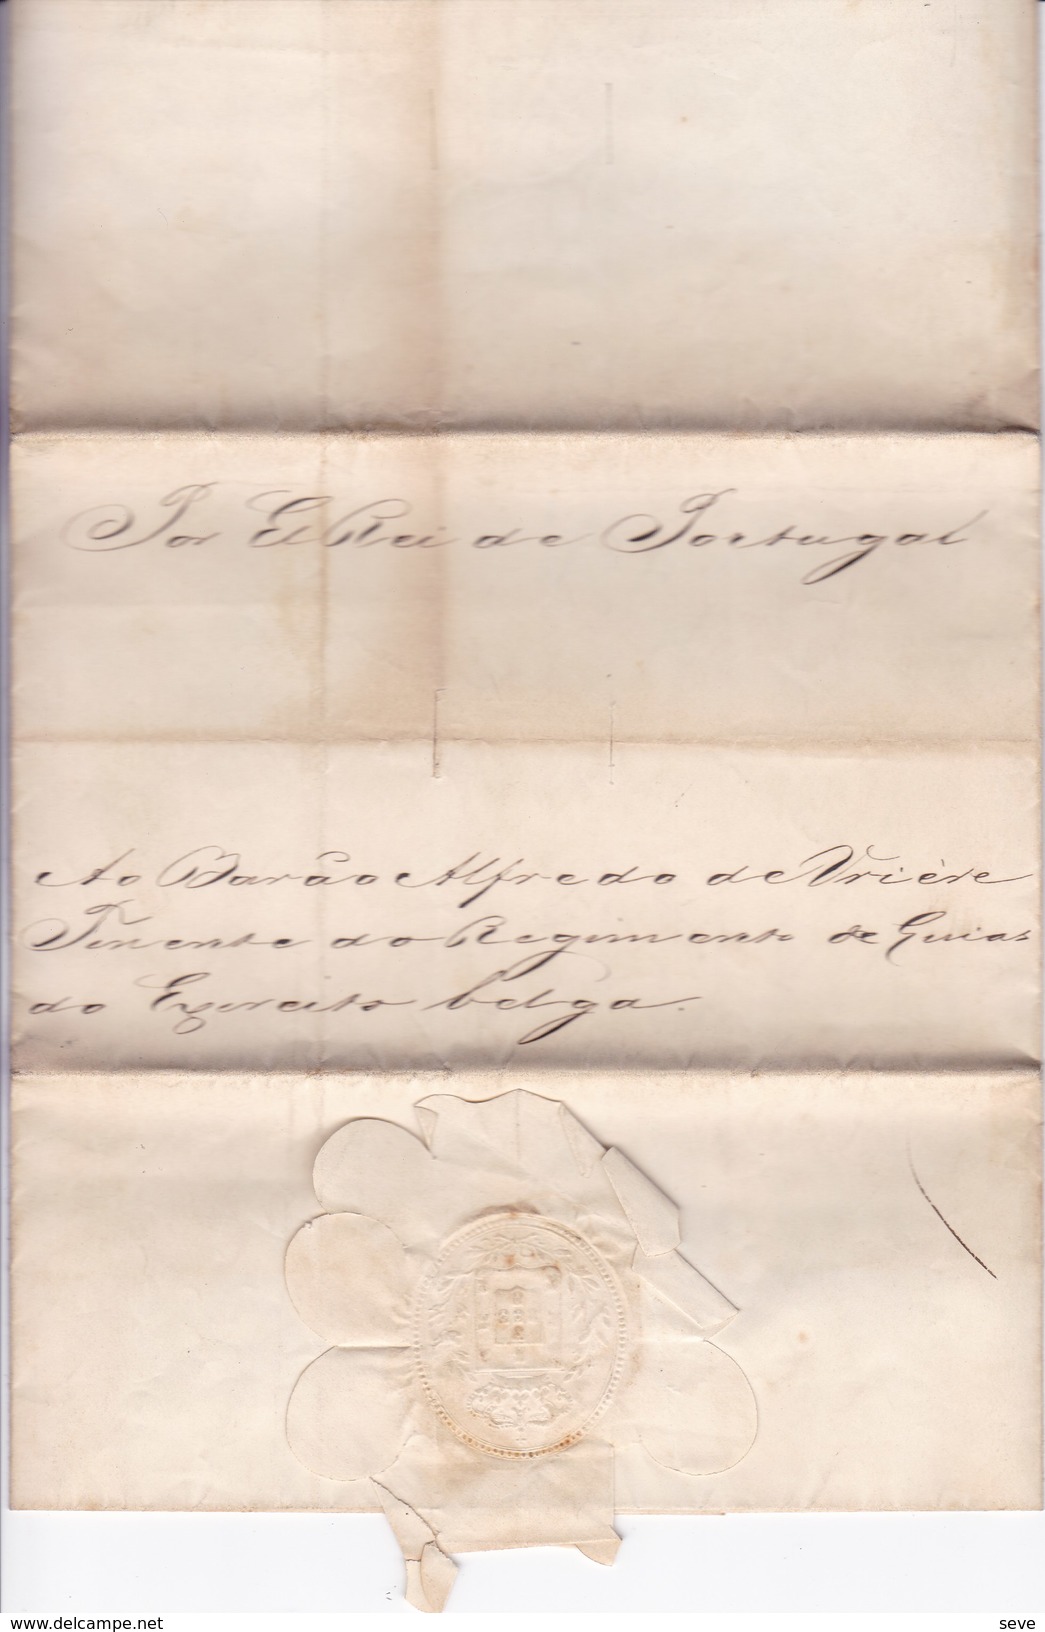 Por El Rei de Portugal
Ao Barão Alfredo de Vrière
Tenente do Regimento de Guias
do Exercito belga.
delcampe.net
seve